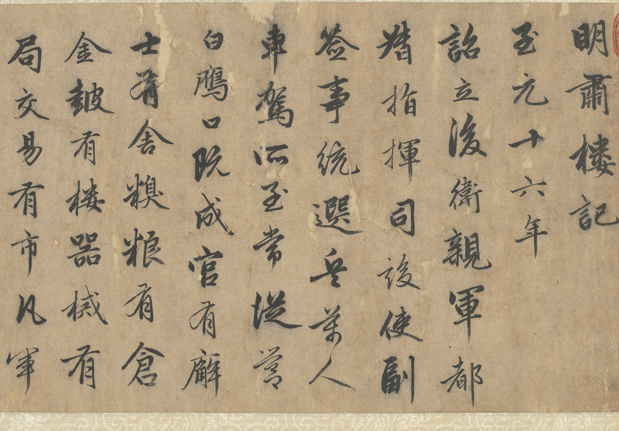 明肅樓記
至元十六年
詔立後衛親軍都
指揮司設使副
簽事統選兵萬人
車駕所至常從營
白鴈口既成官有廨
士有舍糗粮有倉
金鼓有樓器械有
局交易有市凡軍